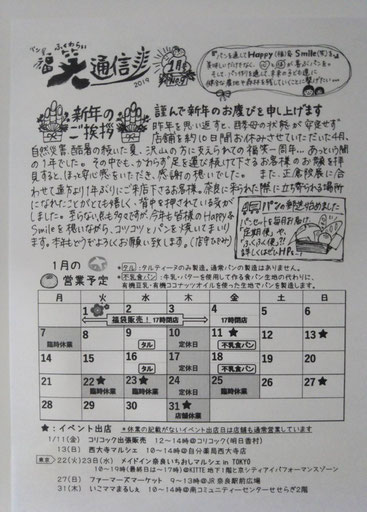 パンの
ふくわらい
福笑通信
2019
1月号
『パンを通してHappy(福)&Smile(笑)を』
新年の
ご挨拶
謹んで新年のお慶びを申し上げます
昨年を思い返すと、酵母の状態が安定せず
店舗を約10日間お休みさせていただいた4月、
自然災害、酷暑の続いた夏、沢山の方に支えられての福笑一周年…あっという間
の1年でした。その中でも、かわらず足を運び続けて下さるお客様のお顔を拝
見すると、ほっと安心感をいただき、感謝の想いでした。また、正倉院展に合
わせて遠方より1年ぶりにご来店下さるお客様。奈良に来られた際に立ち寄られる場所
になれたことがとても嬉しく、背中を押されている気が
しました。まらない点も多々ですが、今年も皆様のHappy&
Smileを想いながら、コツコツとパンを焼いてまいり
ます。今年もどうぞよろしくお願い致します。
パンの郵送始めました
パンセットを毎月お届け
『定期便』や、
『ふくふく便』
詳しくはHPへ
1月の
営業予定
※タル：タルティーヌのみ製造。通常パンの製造はありません。
※不乳食パン：牛乳・バターを使用して作る食パン生地の代わりに、
有機豆乳・有機ココナッツオイルを使った生地でパンを製造します。
月 火 水 木 金 土 日
1 2 3 4 5 6
福袋販売！ 17時閉店 17時閉店
7 8 9 10 11★ 12 13★
臨時休業 タル 定休日 不乳食パン 臨時休業
14 15 16 17 18 19 20
タル 定休日 不乳食パン
21 22★ 23★ 24 25 26 27★
臨時休業 臨時休業 定休日 臨時休業
28 29 30 31★
定休日
★：イベント出店 *休業の記載がないイベント出店日は店舗も通常営業しています
1/11(金) コリコック出張販売 12～14時＠コリコック(明日香村)
13(日) 西大寺マルシェ 10～14時＠自分薬局西大寺店
東京 22(火)23(水) メイドイン奈良いちおしマルシェin TOKYO
10～19時(最終日は～17時)＠KITTE 地下1階と京シティアイパフォーマンスゾーン
27(日) ファーマーズマーケット 9～13時＠JR奈良駅前広場
31(木) いこママまるしぇ 10～14時＠南コミュニティーセンターせせらぎ2階